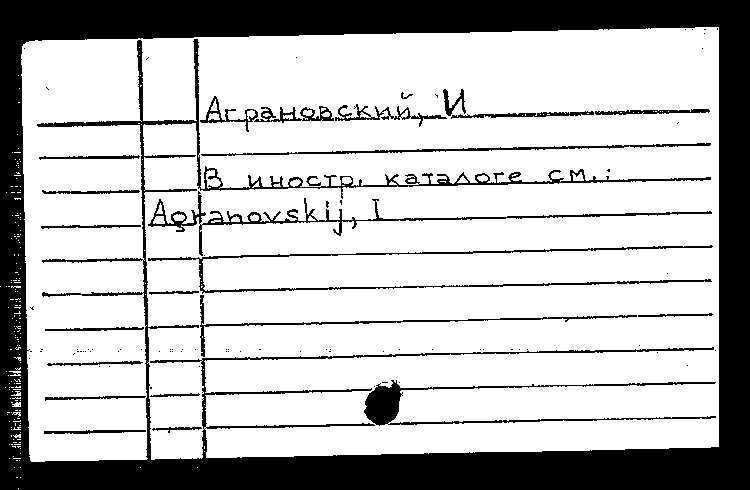 Аграновский, И
В иностр. каталоге см.:
Agranovskij, I